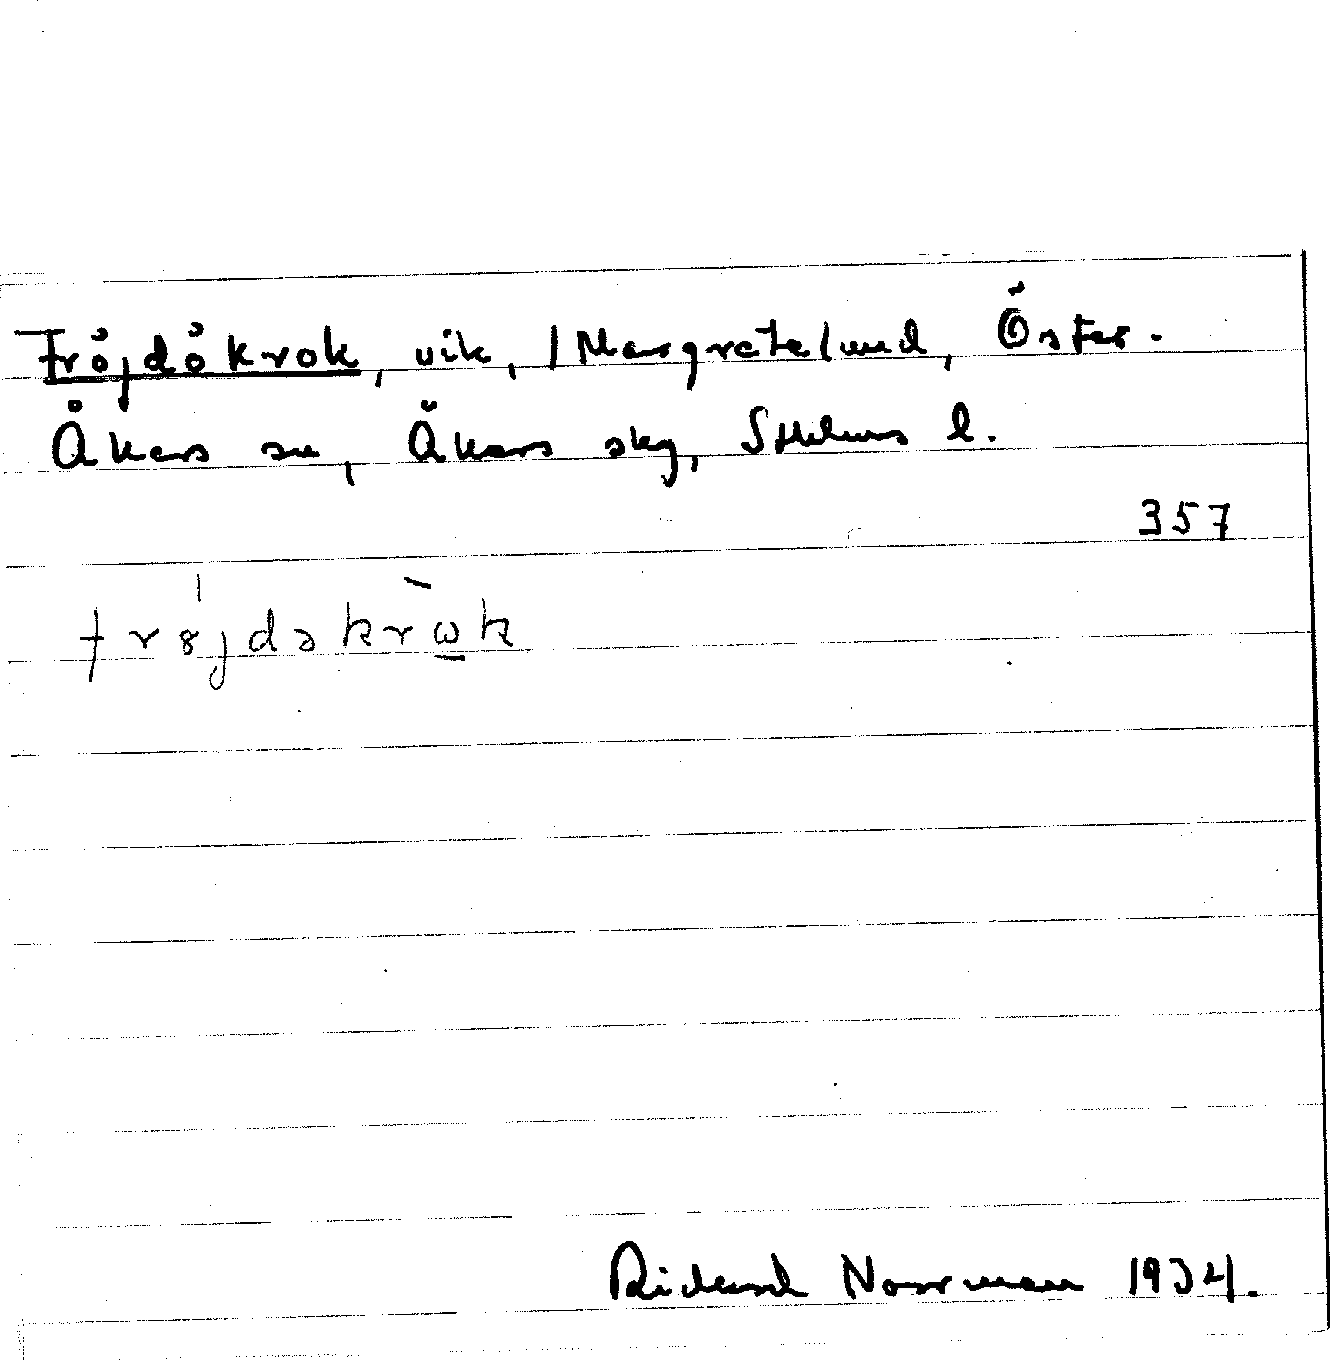 Fröjdökrok, vik, /Margretelund, Öster-
Åkers sn, Åkers skg, Sthlms l.
357
frøjdəkrωk
Rickard Norrman 1934.